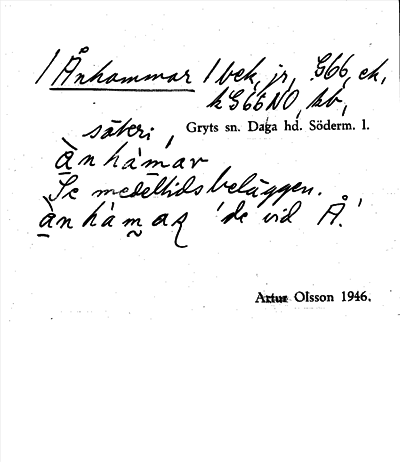 / Ånhammar / bek, jr, G66, ek,
k G66NO, kb,
säteri,
Gryts sn. Daga hd. Söderm. l.
ànhàmar
Se medeltidsbeläggen.
ànhàmaɀ 'de vid Å.'
Artur Olsson 1946.